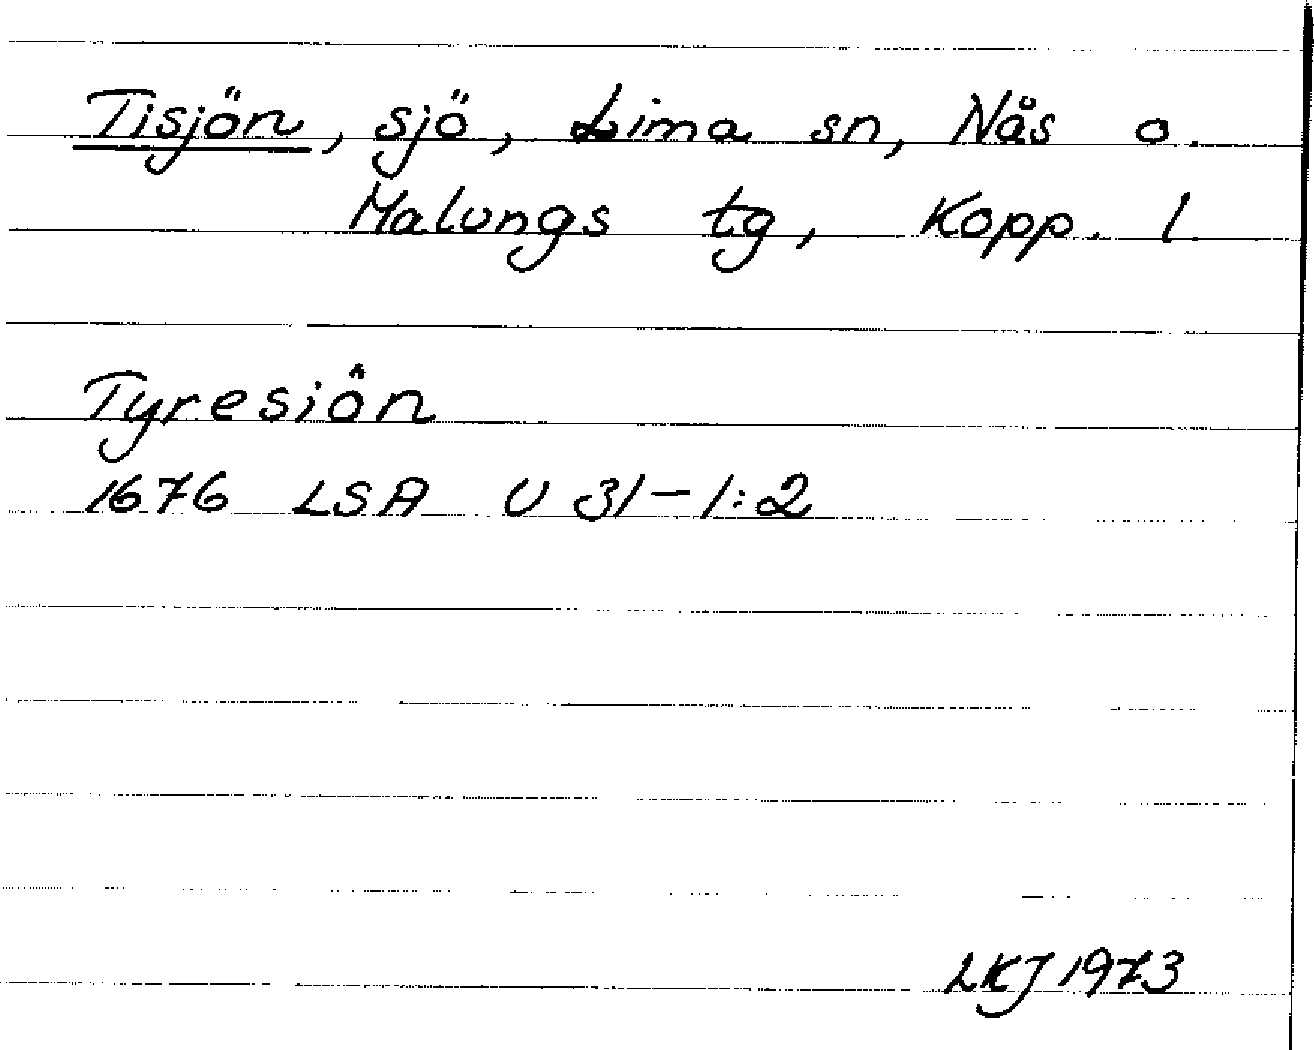 Tisjön, sjö, Lima sn, Nås o.
Malungs tg, Kopp. l
Tyresiôn
1676 LSA U 31-1:2
LKJ 1973